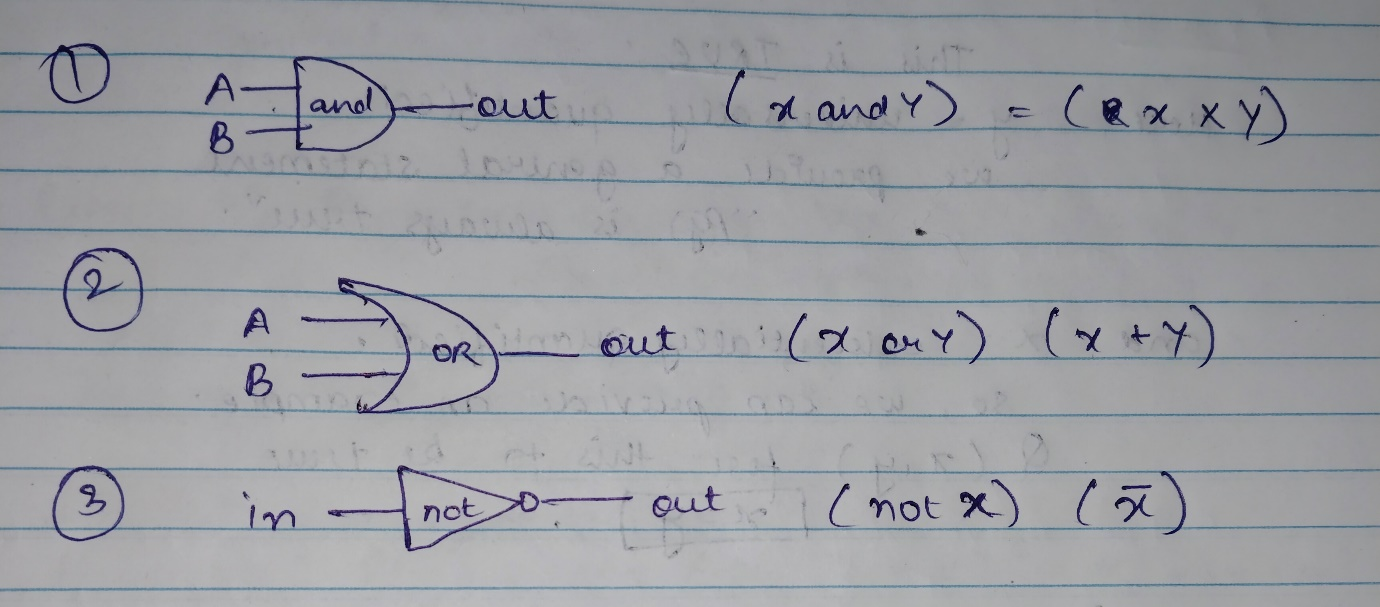 ① A and out (x and Y) = (x × Y)
B
② A OR out (x or Y) (x + Y)
B
③ in not out (not x) (x̄)